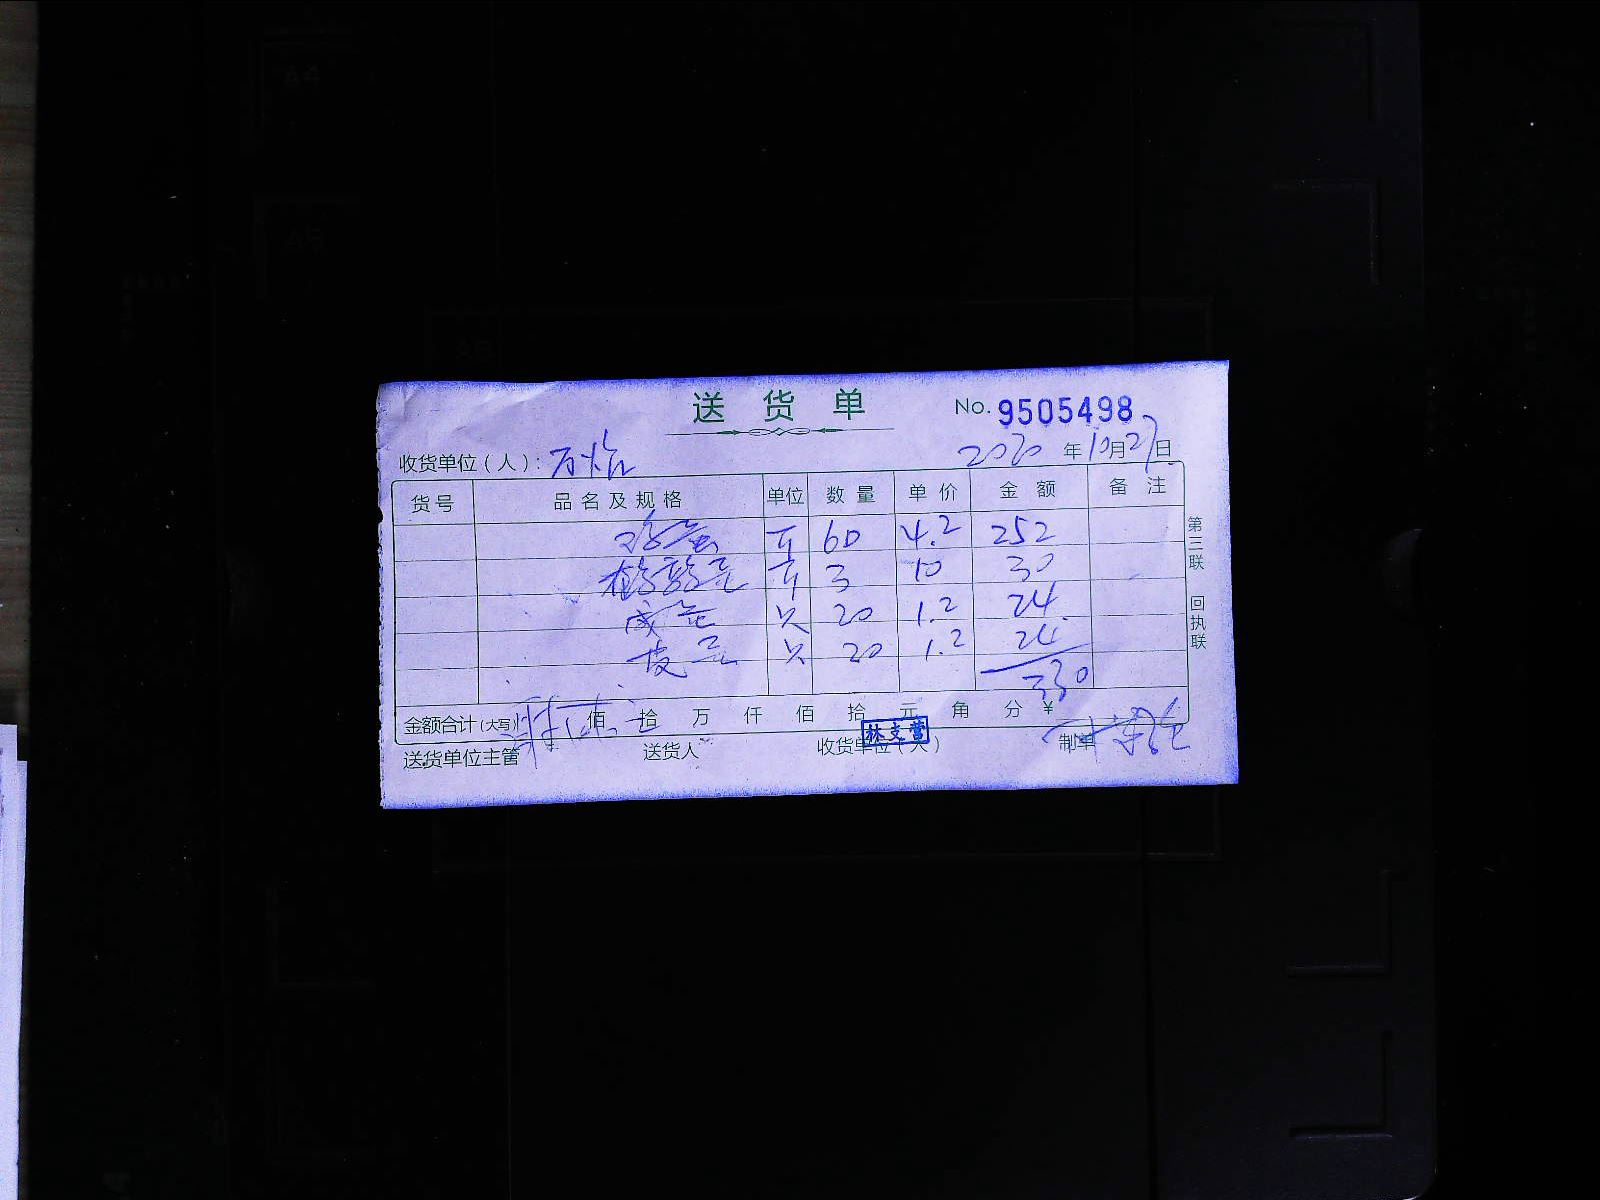 送 货 单
No. 9505498
收货单位(人):万怡
2020 年 10 月 27 日
货号 品名及规格 单位 数量 单价 金额 备注
鸡蛋 斤 60 4.2 252
鹌鹑蛋 斤 3 10 30
咸蛋 只 20 1.2 24
皮蛋 只 20 1.2 24
330
金额合计(大写) 佰 拾 万 仟 佰 拾 元 角 分 ¥
送货单位主管 送货人 收货单位(人) 制单
林支营
第三联 回执联
A4